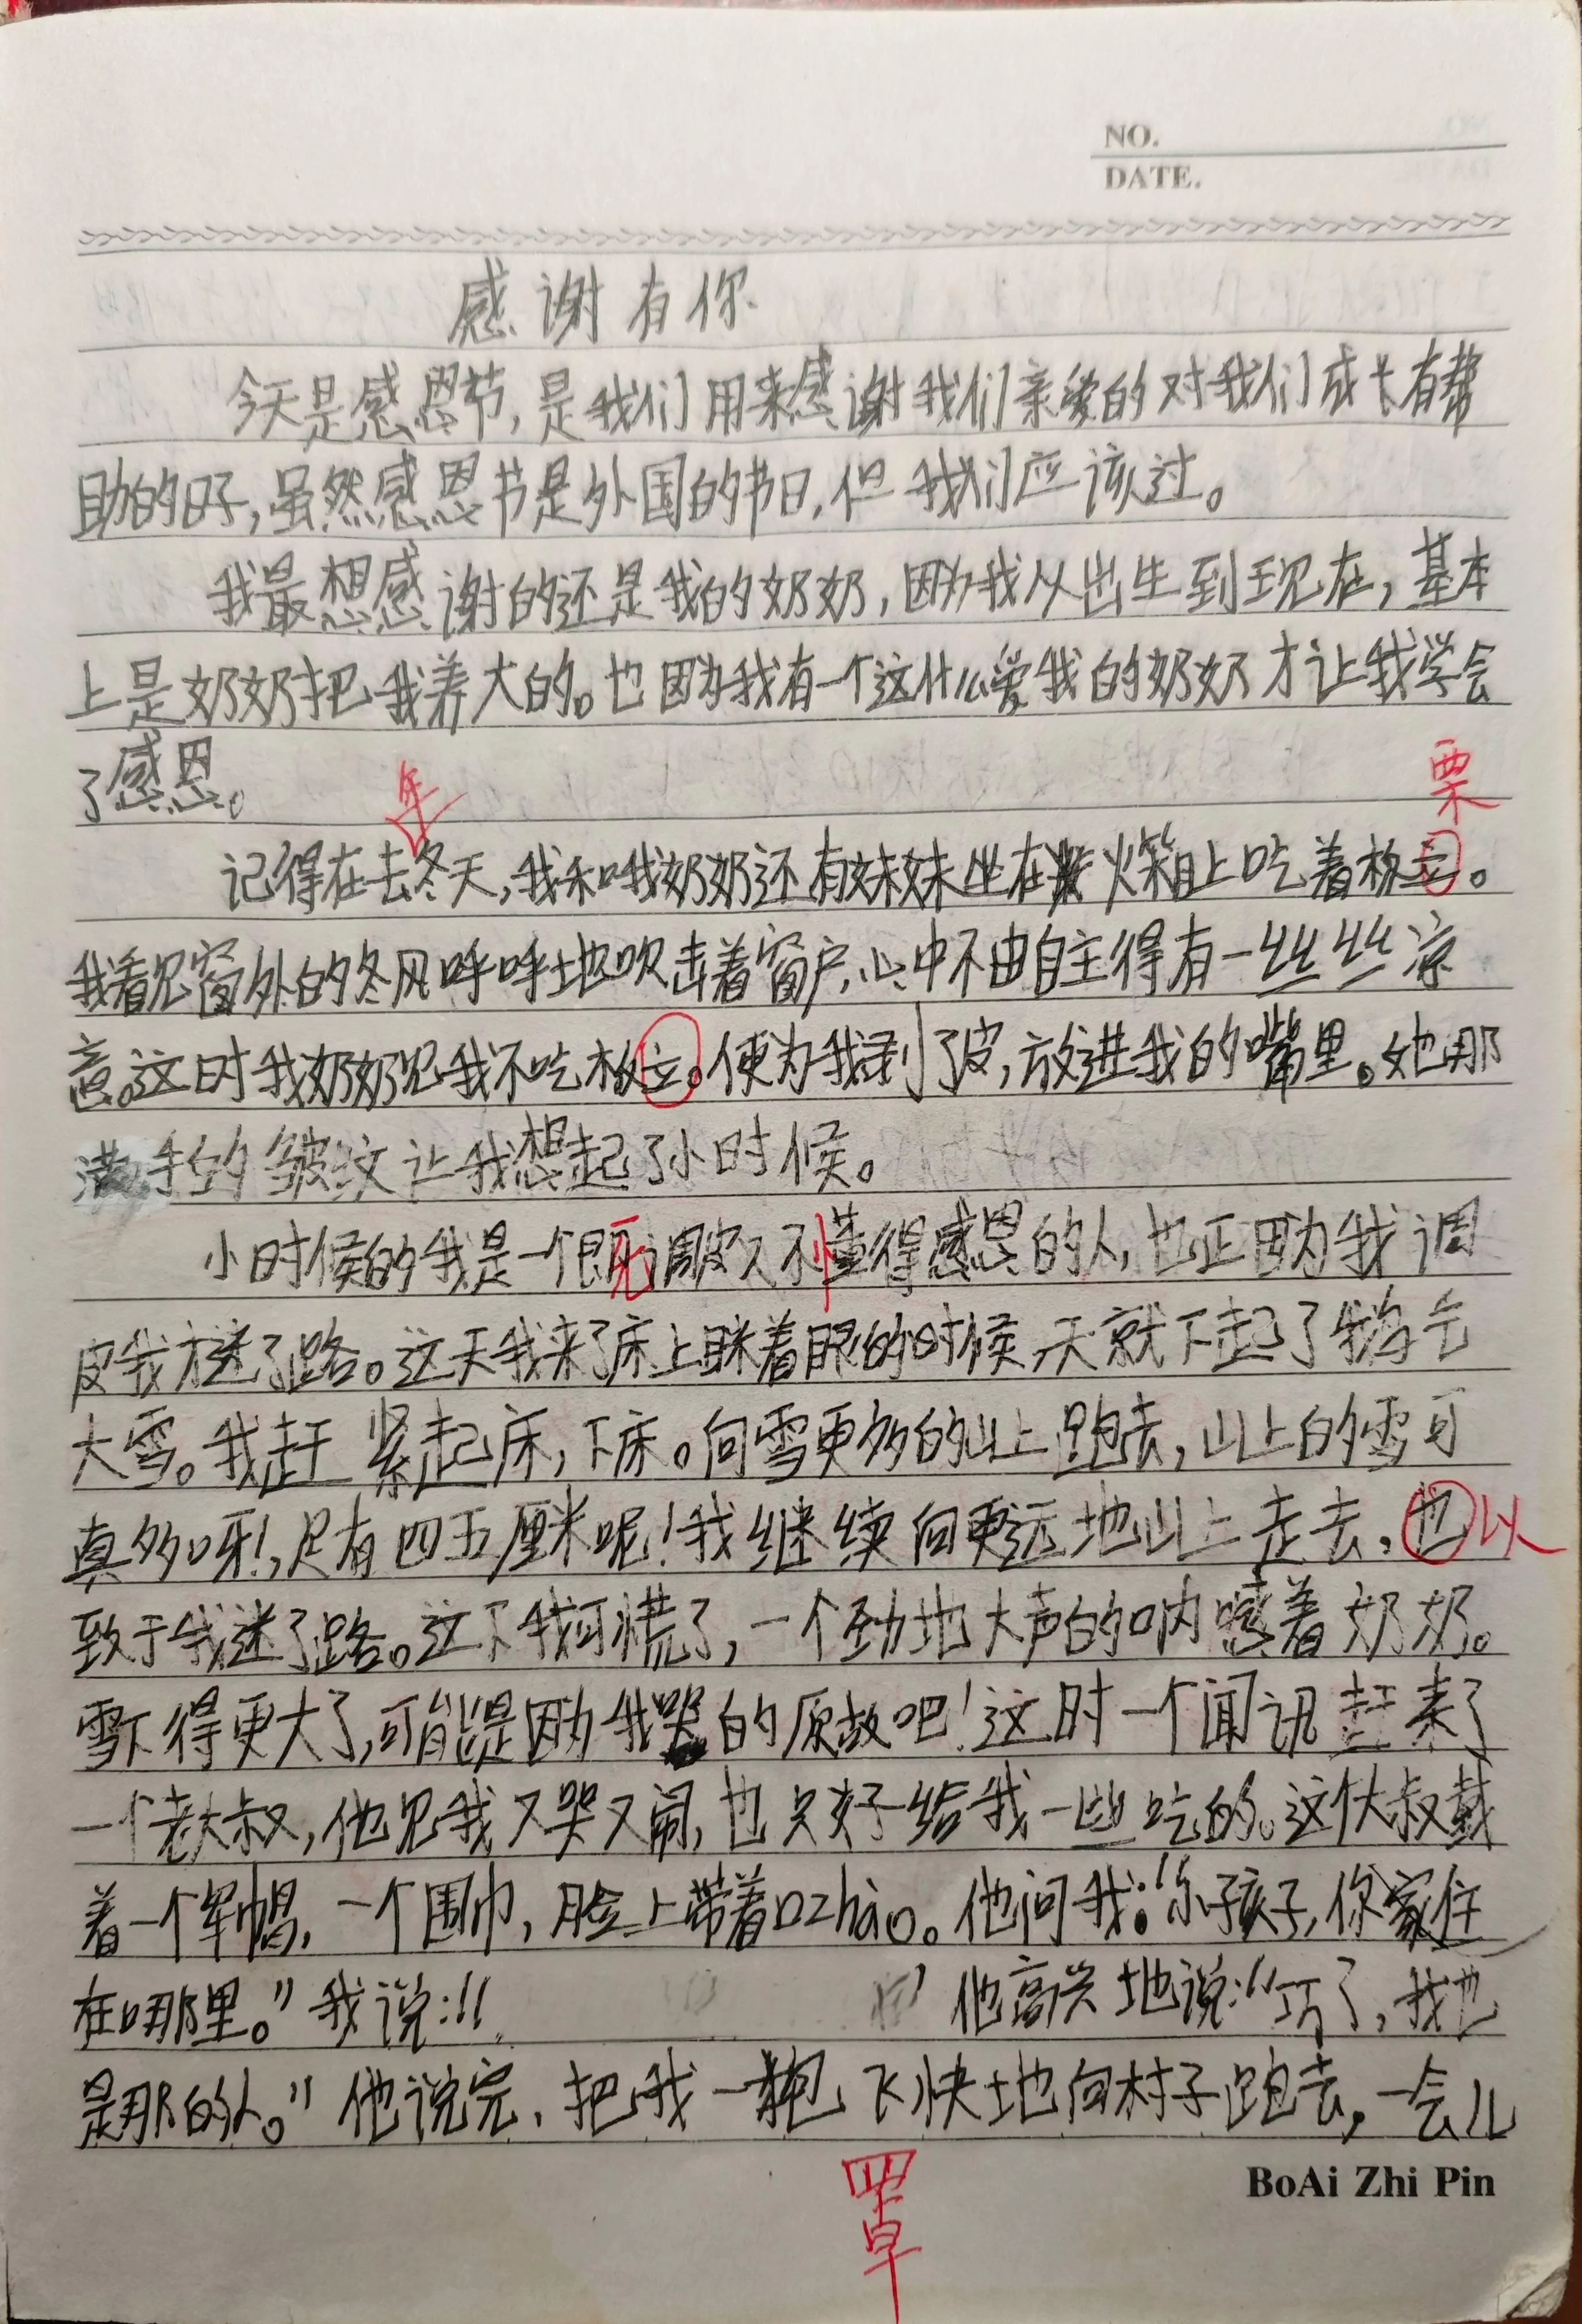 NO.
DATE.
感谢有你
今天是感恩节,是我们用来感谢我们亲爱的对我们成长有帮
助的日子,虽然感恩节是外国的节日,但我们应该过。
我最想感谢的还是我的奶奶,因为我从出生到现在,基本
上是奶奶把我养大的。也因为我有一个这什么爱我的奶奶才让我学会
了感恩。
年
栗
记得在去冬天,我和哦奶奶还有妹妹坐在火箱上吃着板立。
我看见窗外的冬风呼呼地吹击着窗户,心中不由自主得有一丝丝凉
意。这时我奶奶见我不吃板立。便为我剥了皮,放进我的嘴里。她那
满手的皱纹让我想起了小时候。
小时候的我是一个很死调皮又不懂得感恩的人,也正因为我调
皮我才迷了路。这天我来了床上眯着眼的时候,天就下起了鹅毛
大雪。我赶紧起床,下床。向雪更多的山上跑去,山上的雪可
真多呀!,足有四五厘米呢!我继续向更远地山上走去,也以
致于我迷了路。这下我可慌了,一个劲地大声的呐喊着奶奶。
雪下得更大了,可能是因为我哭的原故吧!这时一个闻讯赶来了
一个老大叔,他见我又哭又闹,也只好给我一些吃的。这个大叔戴
着一个军帽,一个围巾,脸上带着口zhào。他问我:“小孩子,你家住
在哪里。”我说:“
”他高兴地说:“巧了,我也
是那的人。”他说完,把我一抱飞快地向村子跑去,一会儿
罩
BoAi Zhi Pin